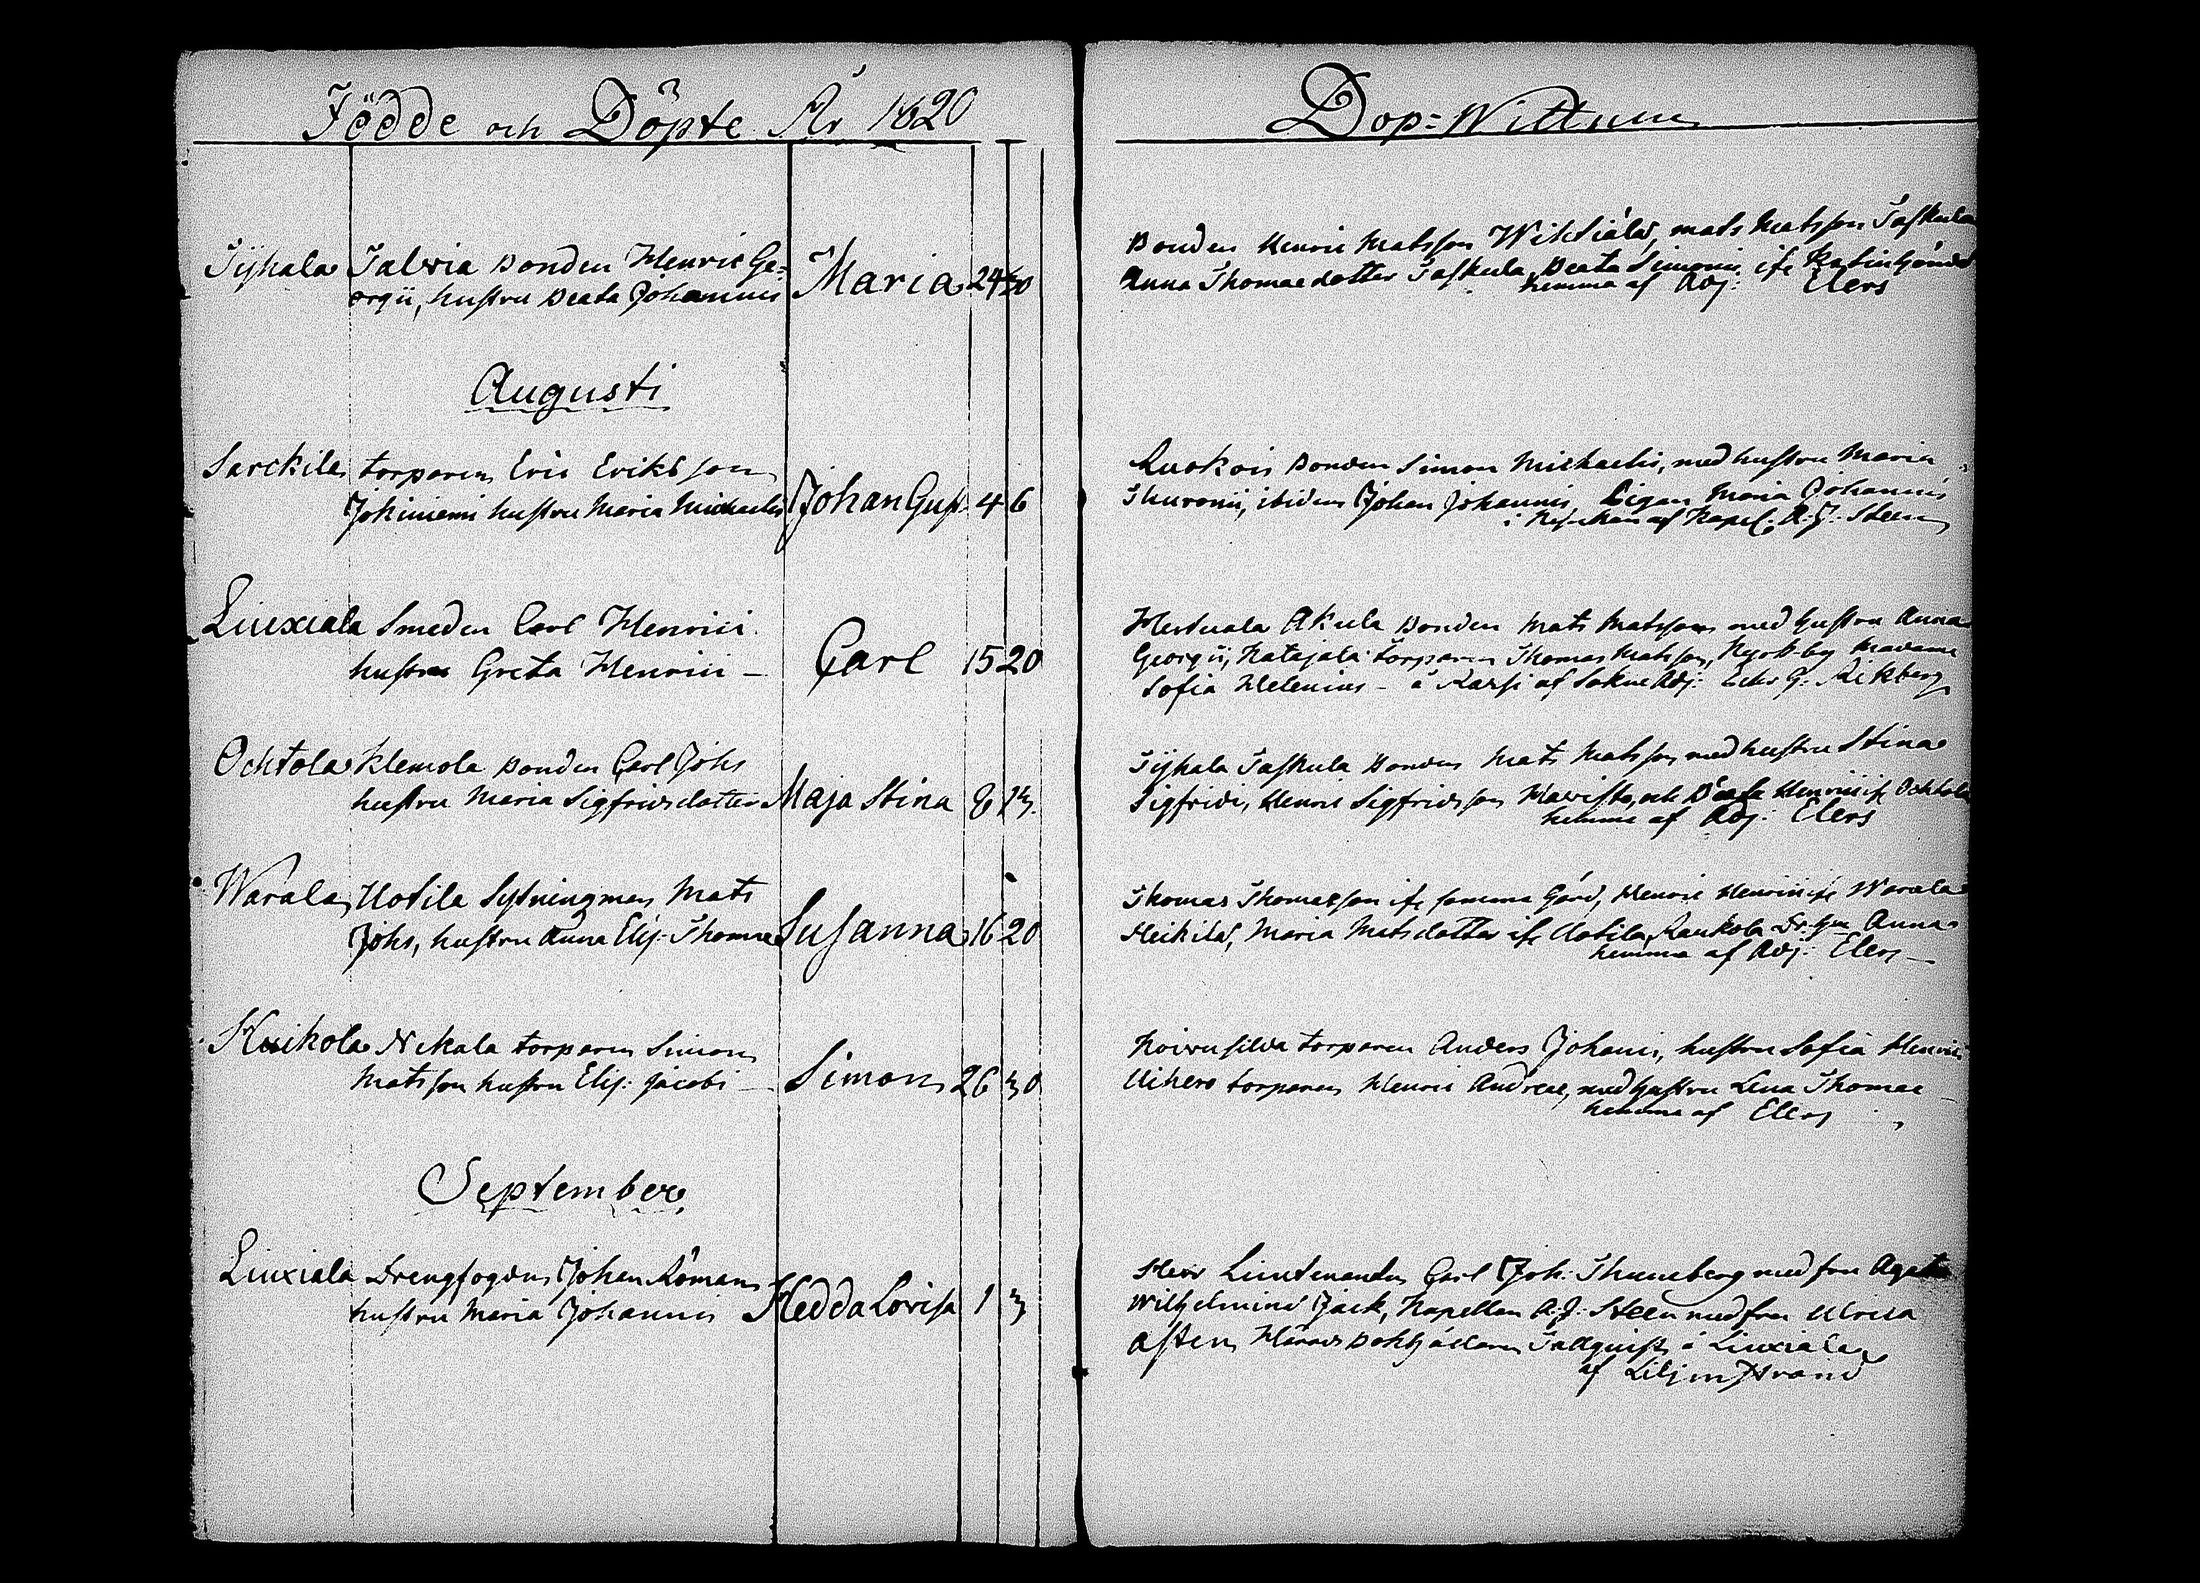 Födde och Döpte År 1820
Dop-Wittnen
Tyhala Talvia Bonden Henric Ge=
orgii, hustru Beata Johannis Maria 24 30
Bonden Henric Matsson Wiktiälä, Mats Matsson Taskula
Anna Thomaedotter Taskula, Beata Simonis
hemma af Adj: Elers
Augusti
Sarckila torparen Eric Eriksson
Jokiniemi hustru Maria Michaelis Johan Gust. 4 6
Ruokois Bonden Simon Michaelis, med hustru Maria
Thuronii, ibidem Johan Johannis, Pigan Maria Johannis
i Kyrckan af Kapel: A: J: Steen
Liuxiala Smeden Carl Henrici
hustru Greta Henrici – Carl 15 20
Hertuala Akula Bonden Mats Matsson med hustru Anna
Georgii, Natajala torparen Thomas Matsson, Kyrkby Madame
Sofia Helenius – af Sokne Adj:
Ochtola Klemola Bonden Carl Johs
hustru Maria Sigfridsdotter Maja Stina 8 13.
Tyhala Taskula Bonden Mats Matsson med hustru Stina
Sigfridi, Henric Sigfridsson och Beata Henrici fr. Ochtola
hemma af Adj: Elers
Warala Uotila Sytningman Mats
Johs, hustru Anna Elis: Thomae Susanna 16 20
Thomas Thomasson ifr. samma Gård, Henric Henrici ifr. Warala
Heikilä, Maria Matsdotter ifr. Uotila, Raukola Anna
hemma af Adj: Elers –
Huikola Nikala torparen Simon
Matsson hustru Elis: Jacobi – Simon 26 30
Koivusilda torparen Anders Johanis, hustru Sofia Henrici
Uihero torparen Henric Andreae, med hustru Lena Thomae –
hemma af Elers
September
Liuxiala Drengfogden Johan Röman
hustru Maria Johannis Hedda Lovisa 1 3
Herr Lieutenanten Carl Joh: Thuneberg med fru Agata
Wilhelmina Jack, Kapellan A: J: Steen med fru Ulrica
Asten, Härads Bokhållaren Tallquist å Liuxiala
af Liljenstrand